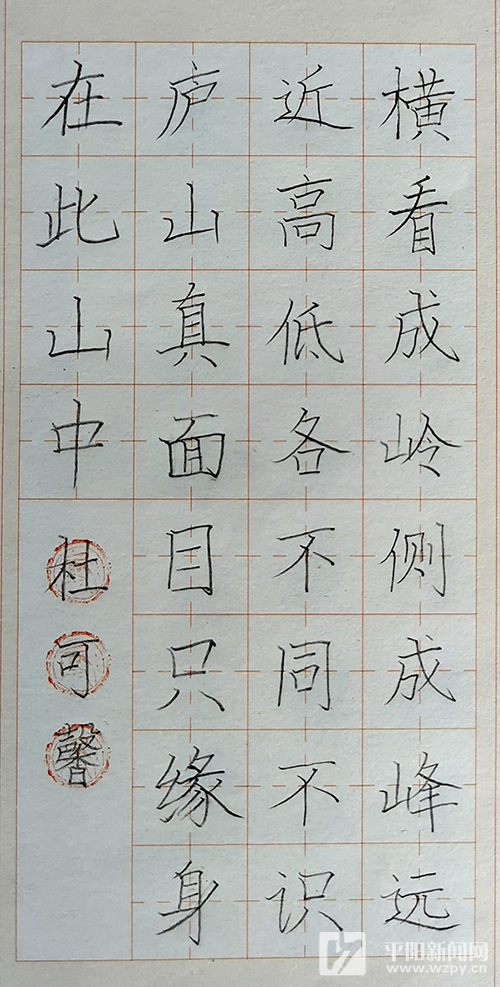 横看成岭侧成峰远
近高低各不同不识
庐山真面目只缘身
在此山中
杜可馨
平阳新闻网
www.wzpy.cn